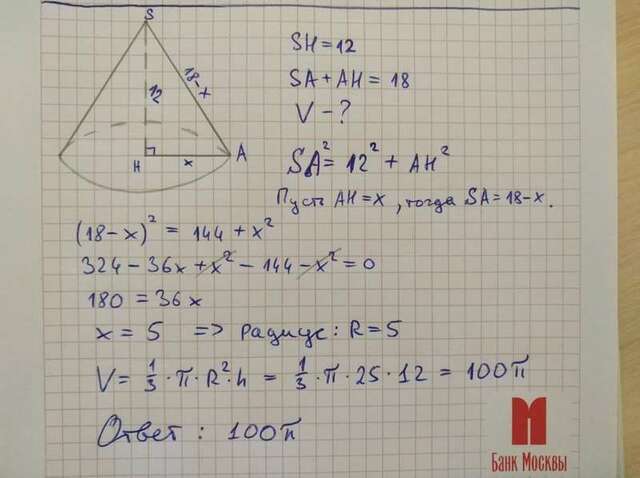 S
18-x
12
H
x
A
SH=12
SA+AH=18
V-?
SA²=12²+AH²
Пусть AH=x, тогда SA=18-x.
(18-x)²=144+x²
324-36x+x²-144-x²=0
180=36x
x=5 => радиус: R=5
V=1/3·π·R²·h=1/3·π·25·12=100π
Ответ: 100π
М
Банк Москвы